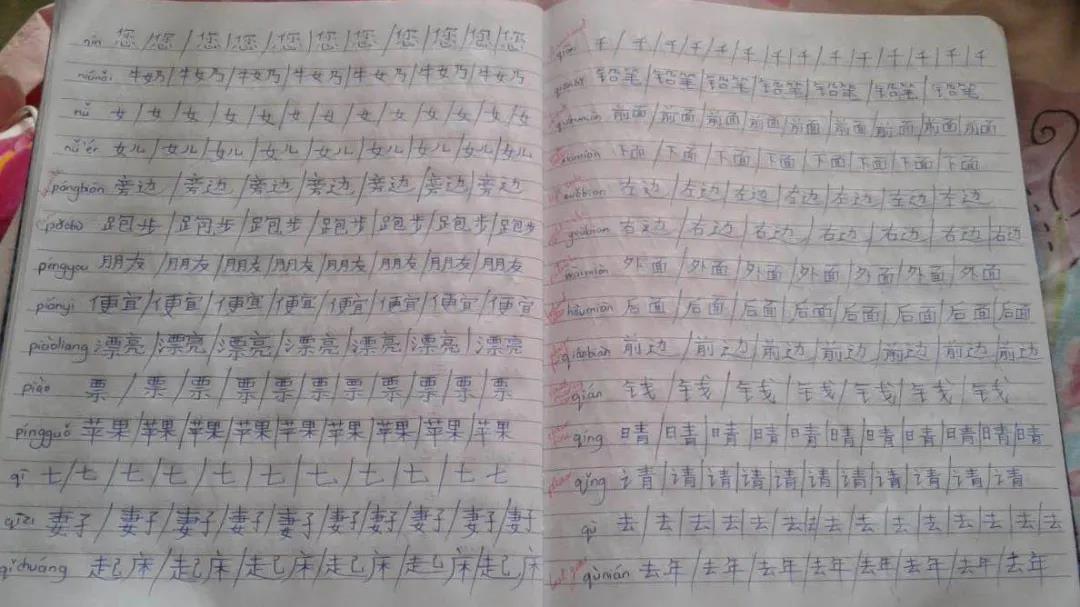 nín 您/您/您/您/您/您/您/您/您/您/您
niúnǎi 牛奶/牛奶/牛奶/牛奶/牛奶/牛奶/牛奶
nǚ 女/女/女/女/女/女/女/女/女/女/女
nǚ'ér 女儿/女儿/女儿/女儿/女儿/女儿/女儿/女儿/女儿
pángbiān 旁边/旁边/旁边/旁边/旁边/旁边/旁边
pǎobù 跑步/跑步/跑步/跑步/跑步/跑步/跑步
péngyou 朋友/朋友/朋友/朋友/朋友/朋友/朋友/朋友
piányi 便宜/便宜/便宜/便宜/便宜/便宜/便宜/便宜
piàoliang 漂亮/漂亮/漂亮/漂亮/漂亮/漂亮/漂亮
piào 票/票/票/票/票/票/票/票/票/票/票
píngguǒ 苹果/苹果/苹果/苹果/苹果/苹果/苹果/苹果/苹果
qī 七/七/七/七/七/七/七/七/七/七/七
qīzi 妻子/妻子/妻子/妻子/妻子/妻子/妻子/妻子/妻子/妻子
qǐchuáng 起床/起床/起床/起床/起床/起床
qiān 千/千/千/千/千/千/千/千/千/千/千/千/千/千
铅笔/铅笔/铅笔/铅笔/铅笔/铅笔/铅笔
qiánmiàn 前面/前面/前面/前面/前面/前面/前面/前面/前面
xiàmiàn 下面/下面/下面/下面/下面/下面/下面/下面
zuǒbian 左边/左边/左边/左边/左边/左边/左边
yòubian 右边/右边/右边/右边/右边/右边/右边
wàimiàn 外面/外面/外面/外面/外面/外面/外面
hòumiàn 后面/后面/后面/后面/后面/后面/后面/后面
qiánbiān 前边/前边/前边/前边/前边/前边/前边
qián 钱/钱/钱/钱/钱/钱/钱
qíng 晴/晴/晴/晴/晴/晴/晴/晴/晴/晴/晴
qǐng 请/请/请/请/请/请/请/请/请/请/请
qù 去/去/去/去/去/去/去/去/去/去/去/去/去/去/去
qùnián 去年/去年/去年/去年/去年/去年/去年/去年